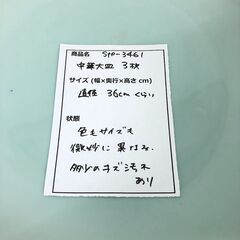 商品名 S40-3461
中華大皿 3枚
サイズ(幅×奥行×高さcm)
直径 36cm くらい
状態
色もサイズも
微妙に異なる.
多少のキズ汚れ
あり